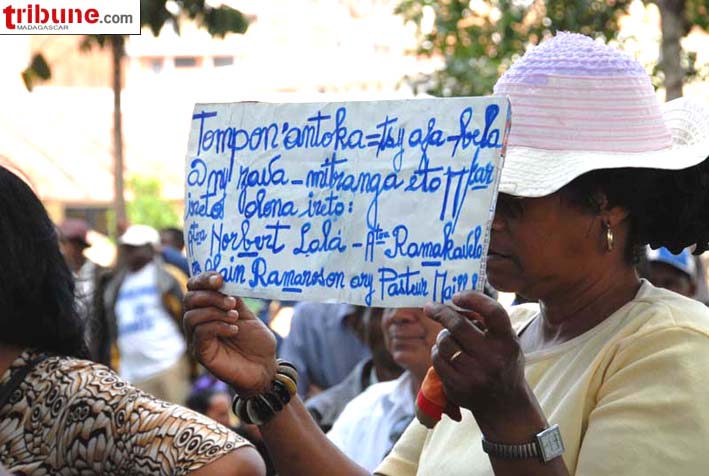 tribune.com
MADAGASCAR
Tompon'antoka = tsy afa-bela
@ny zava-mitranga eto Mkar
ireto olona ireto:
Norbert Lala - Atoa Ramakavelo
Alain Ramaroson ary Pasteur Mai???